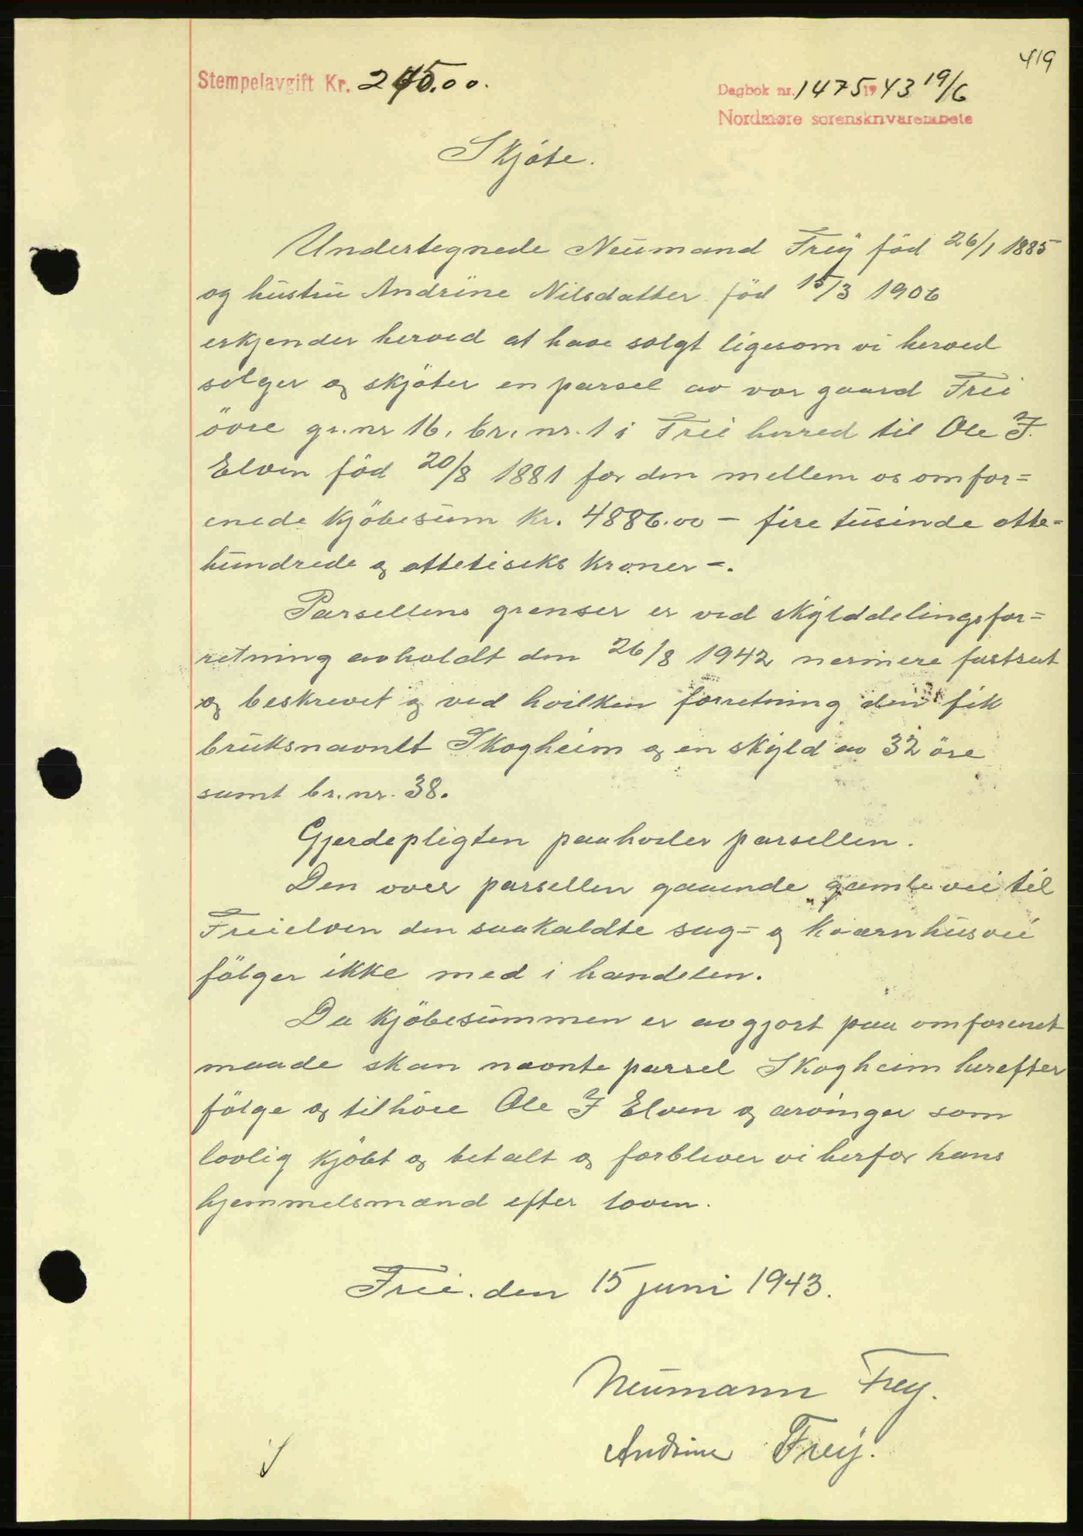 419
Stempelavgift Kr. 245.00.
Dagbok nr. 1475 19 43 19/6
Nordmøre sorenskriverembete
Skjøte.
Undertegnede Neumand Frey född 26/1 1885
og hustru Andrine Nilsdatter född 15/3 1906
erkjender herved at have solgt ligesom vi herved
selger og skjøter en parsel av vor gaard Frei
övre gr.nr 16. br. nr. 1 i Frei herred til Ole J.
Elven född 20/8 1881 for den mellem os omfor=
enede kjöbesum Kr. 4886.00 — fire tusinde otte-
hundrede og ottetiseks kroner —.
Parsellens grenser er ved skylddelingsfor=
retning avholdt den 26/8 1942 nermere fastsat
og beskrevet og ved hvilken forretning den fik
bruksnavnet Skogheim og en skyld av 32 öre
samt br. nr. 38.
Gjerdepligten paahviler parsellen.
Den over parsellen gaaende gamle vei til
Freielven den saakaldte sag= og Kværnhusvei
fölger ikke med i handelen.
Da kjöbesummen er avgjort paa omforenet
maade skan nævnte parsel Skogheim herefter
fölge og tilhöre Ole J Elven og arvinger som
lovlig kjöbt og betalt og forbliver vi herfor hans
hjemmelsmænd efter loven.
Frei. den 15 juni 1943.
Neumann Frey.
Andrine Frey.